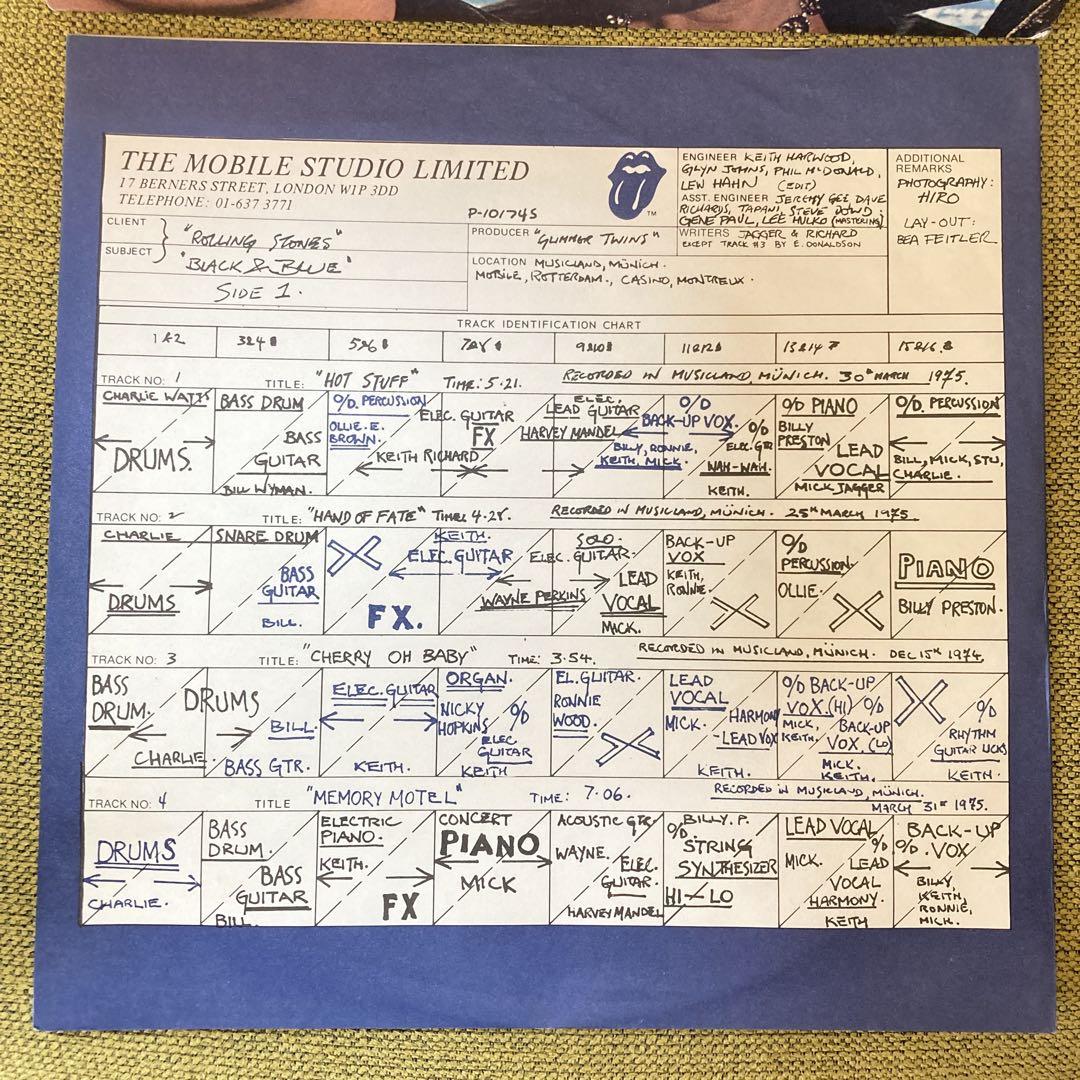 THE MOBILE STUDIO LIMITED
17 BERNERS STREET, LONDON W1P 3DD
TELEPHONE: 01-637 3771
P-10174S
TM
ENGINEER KEITH HARWOOD,
GLYN JOHNS, PHIL McDONALD,
LEW HAHN (EDIT)
ASST. ENGINEER JEREMY GEE DAVE
RICHARDS, TAPANI, STEVE DOWD,
GENE PAUL, LEE HULKO (MASTERING)
WRITERS JAGGER & RICHARD
EXCEPT TRACK #3 BY E. DONALDSON
ADDITIONAL
REMARKS
PHOTOGRAPHY:
HIRO
LAY-OUT:
BEA FEITLER
CLIENT
SUBJECT
"ROLLING STONES"
"BLACK & BLUE"
SIDE 1.
PRODUCER "GLIMMER TWINS"
LOCATION MUSICLAND, MÜNICH.
MOBILE, ROTTERDAM., CASINO, MONTREUX.
TRACK IDENTIFICATION CHART
1 & 2 3 & 4 5 & 6 7 & 8 9 & 10 11 & 12 13 & 14 15 & 16
TRACK NO: 1 TITLE: "HOT STUFF" TIME: 5·21. RECORDED IN MUSICLAND, MÜNICH. 30TH MARCH 1975.
CHARLIE WATTS
DRUMS.
BASS DRUM
BASS
GUITAR
BILL WYMAN.
O/D. PERCUSSION
OLLIE. E.
BROWN.
ELEC. GUITAR
FX
KEITH RICHARD
ELEC.
LEAD GUITAR
HARVEY MANDEL
O/D
BACK-UP VOX.
BILLY, RONNIE,
KEITH, MICK.
O/D
ELEC. GTR
WAH-WAH.
KEITH.
O/D PIANO
BILLY
PRESTON
LEAD
VOCAL
MICK JAGGER
O/D. PERCUSSION
BILL, MICK, STU,
CHARLIE.
TRACK NO: 2 TITLE: "HAND OF FATE" TIME: 4·28. RECORDED IN MUSICLAND, MÜNICH. 25TH MARCH 1975.
CHARLIE
DRUMS
SNARE DRUM
BASS
GUITAR
BILL.
FX.
KEITH.
ELEC. GUITAR
WAYNE PERKINS
SOLO.
ELEC. GUITAR.
LEAD
VOCAL
MICK.
BACK-UP
VOX
KEITH,
RONNIE.
O/D
PERCUSSION.
OLLIE.
PIANO
BILLY PRESTON.
TRACK NO: 3 TITLE: "CHERRY OH BABY" TIME: 3·54. RECORDED IN MUSICLAND, MÜNICH. DEC 15TH 1974.
BASS
DRUM.
DRUMS
CHARLIE.
BILL.
BASS GTR.
ELEC. GUITAR
KEITH.
ORGAN.
NICKY
HOPKINS
O/D
ELEC
GUITAR
KEITH
EL. GUITAR.
RONNIE
WOOD.
LEAD
VOCAL
MICK.
HARMONY
-LEAD VOX
KEITH.
O/D BACK-UP
VOX.(HI)
MICK.
KEITH.
O/D
BACK-UP
VOX. (LO)
MICK.
KEITH.
O/D
RHYTHM
GUITAR LICKS
KEITH.
TRACK NO: 4 TITLE "MEMORY MOTEL" TIME: 7·06. RECORDED IN MUSICLAND, MÜNICH.
MARCH 31ST 1975.
DRUMS
CHARLIE.
BASS
DRUM.
BASS
GUITAR
BILL
ELECTRIC
PIANO.
KEITH.
FX
CONCERT
PIANO
MICK
ACOUSTIC GTR
WAYNE.
ELEC.
GUITAR.
HARVEY MANDEL
BILLY. P.
O/D.
STRING
SYNTHESIZER
HI - LO
LEAD VOCAL
MICK.
LEAD
VOCAL
HARMONY.
KEITH
BACK-UP
O/D. VOX
BILLY,
KEITH,
RONNIE,
MICK.